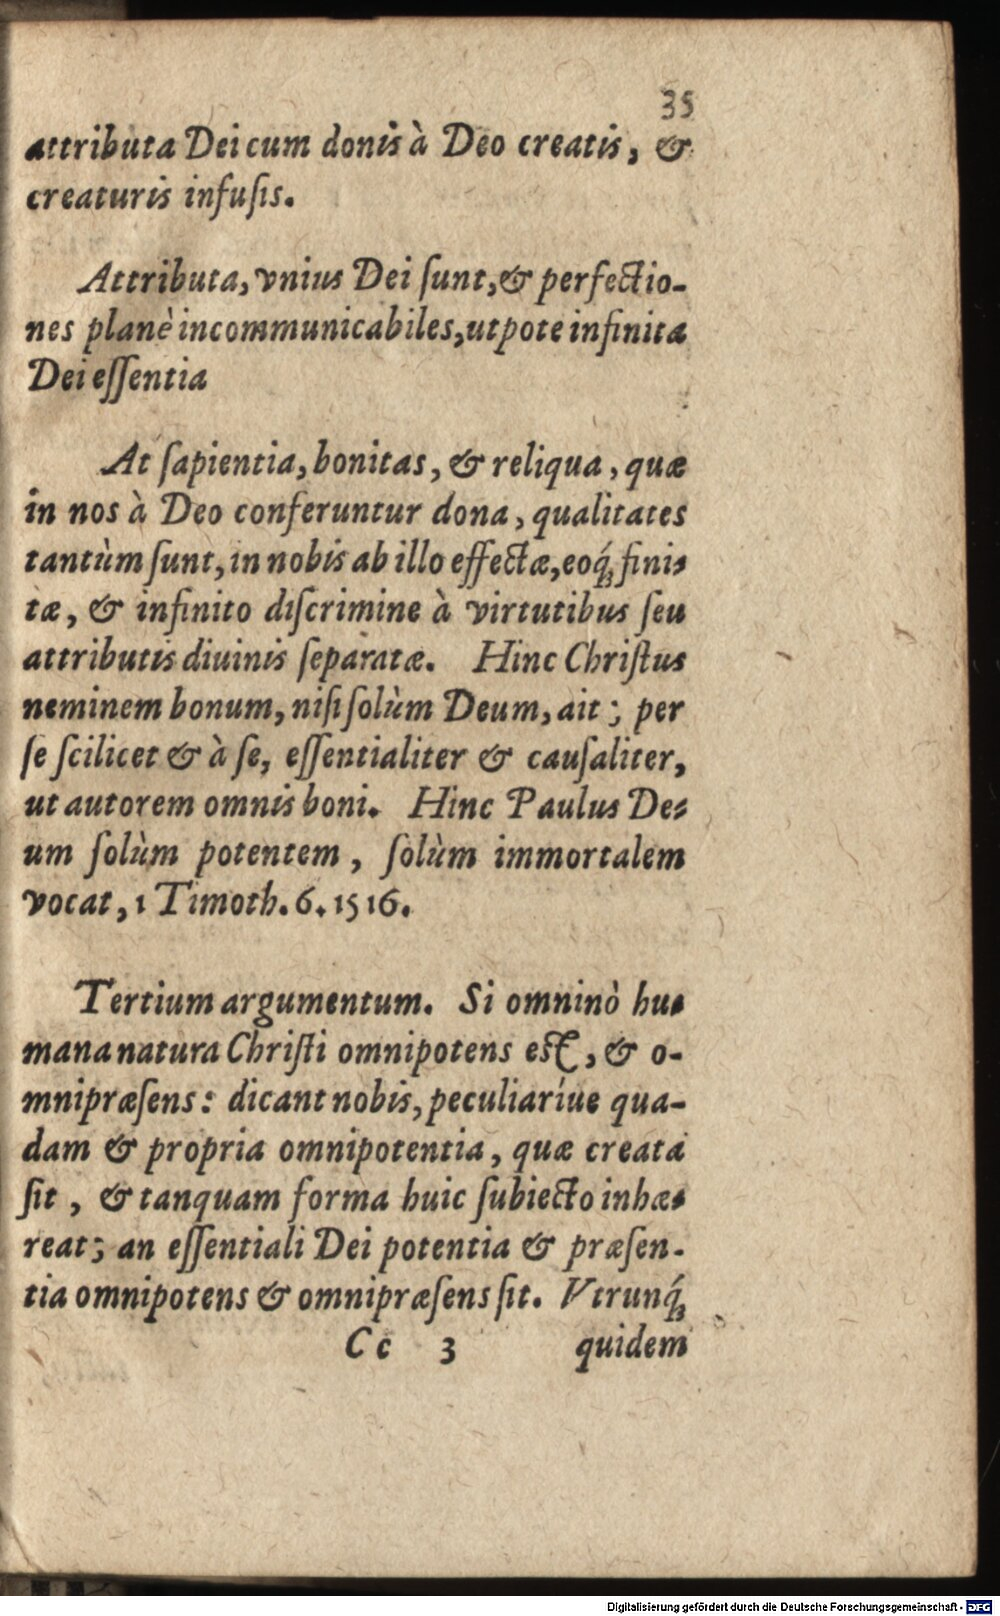 35
attributa Dei cum donis à Deo creatis, &
creaturis infuſis.
Attributa, vnius Dei ſunt, & perfectio-
nes planè incommunicabiles, utpote infinita
Dei eſſentia
At ſapientia, bonitas, & reliqua, quæ
in nos à Deo conferuntur dona, qualitates
tantùm ſunt, in nobis ab illo effectæ, eoq́ꝫ fini⸗
tæ, & infinito diſcrimine à virtutibus ſeu
attributis diuinis ſeparatæ. Hinc Chriſtus
neminem bonum, niſi ſolùm Deum, ait; per
ſe ſcilicet & à ſe, eſſentialiter & cauſaliter,
ut autorem omnis boni. Hinc Paulus De⸗
um ſolùm potentem, ſolùm immortalem
vocat, 1 Timoth. 6. 15 16.
Tertium argumentum. Si omninò hu⸗
mana natura Chriſti omnipotens eſt, & o-
mnipræſens: dicant nobis, peculiaríue qua-
dam & propria omnipotentia, quæ creata
ſit, & tanquam forma huic ſubiecto inhæ⸗
reat; an eſſentiali Dei potentia & præſen-
tia omnipotens & omnipræſens ſit. Vtrunq́ꝫ
Cc 3 quidem
Digitalisierung gefördert durch die Deutsche Forschungsgemeinschaft - DFG